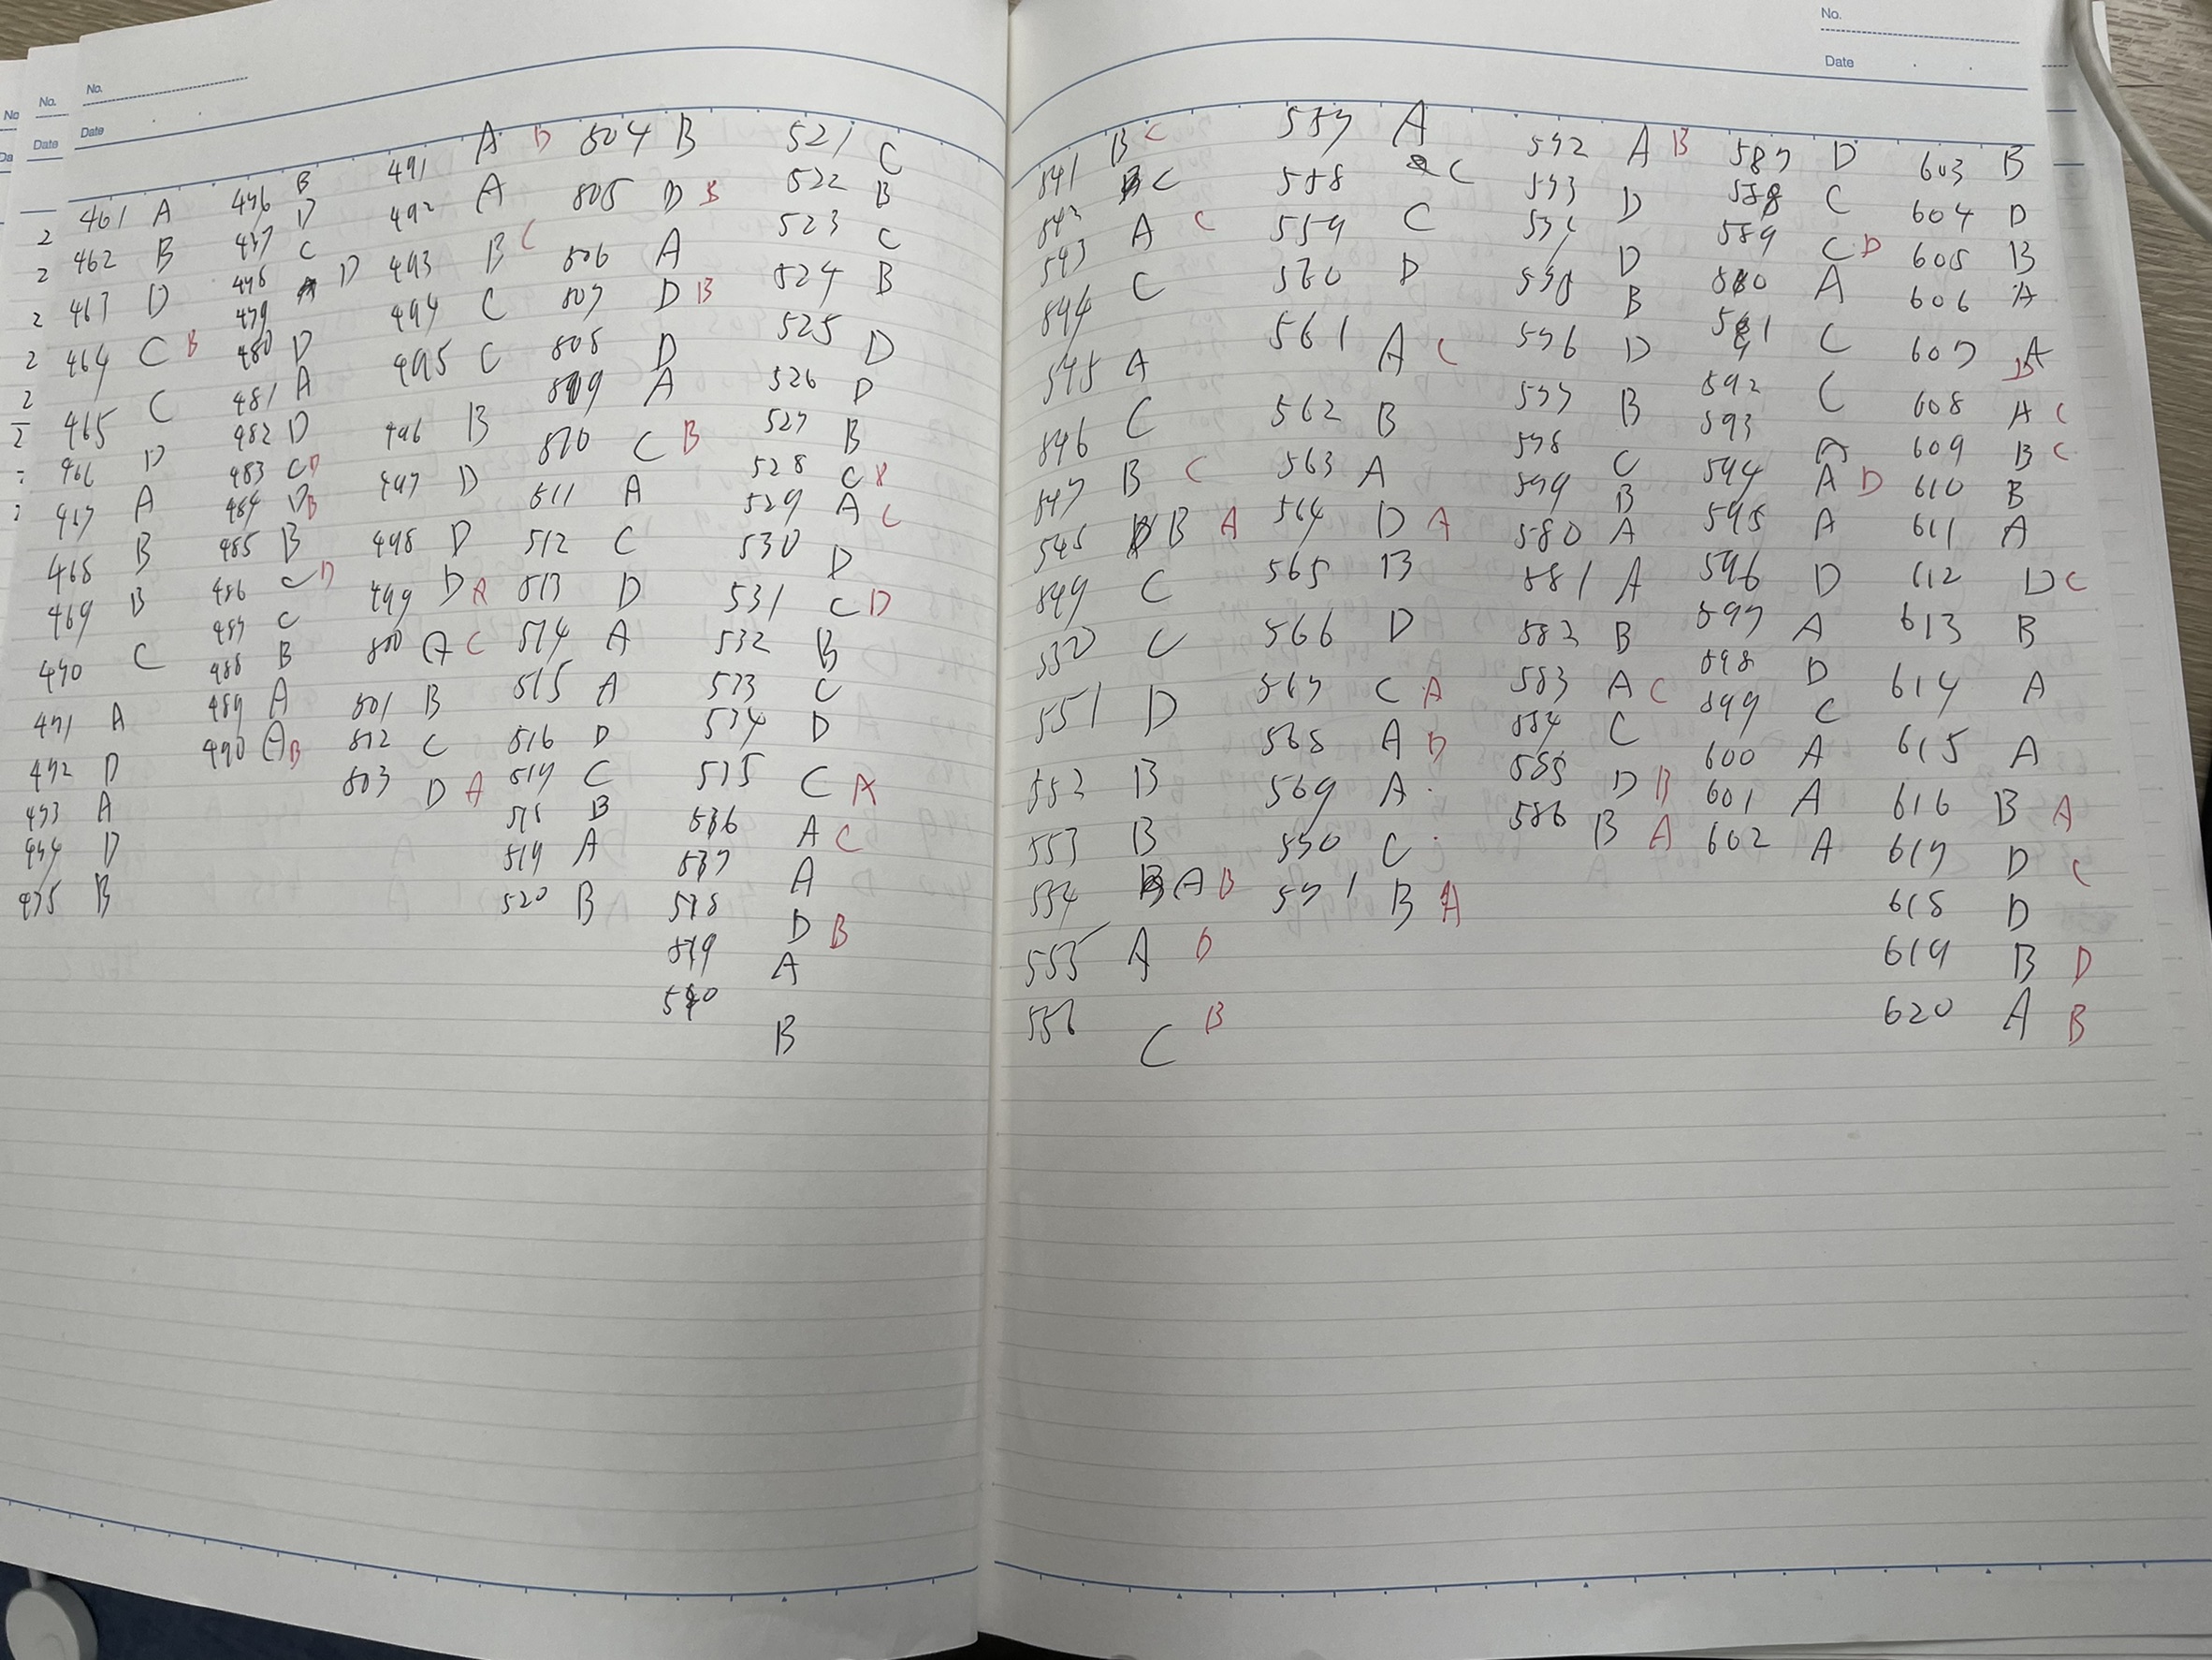 No.
Date
No.
Date
No.
Date
461 A
462 B
463 D
464 C B
465 C
466 D
467 A
468 B
469 B
470 C
471 A
472 D
473 A
474 D
475 B
476 B
477 D
478 C
479 D
480 D
481 A
482 D
483 C D
484 D B
485 B
486 C D
487 C
488 B
489 A
490 A B
491 A D
492 A
493 B C
494 C
495 C
496 B
497 D
498 D
499 D A
500 A C
501 B
502 C
503 D A
504 B
505 D B
506 A
507 D B
508 D
509 A
510 C B
511 A
512 C
513 D
514 A
515 A
516 D
517 C
518 B
519 A
520 B
521 C
522 B
523 C
524 B
525 D
526 D
527 B
528 C B
529 A C
530 D
531 C D
532 B
533 C
534 D
535 C A
536 A C
537 A
538 D B
539 A
540 B
No.
Date
541 B C
542 C
543 A C
544 C
545 A
546 C
547 B C
548 B A
549 C
550 C
551 D
552 B
553 B
554 A B
555 A D
556 C B
557 A
558 C
559 C
560 D
561 A C
562 B
563 A
564 D A
565 B
566 D
567 C A
568 A D
569 A
570 C
571 B A
572 A B
573 D
574 D
575 B
576 D
577 B
578 C
579 B
580 A
581 A
582 B
583 A C
584 C
585 D B
586 B A
587 D
588 C
589 C D
590 A
591 C
592 C
593 A
594 A D
595 A
596 D
597 A
598 D
599 C
600 A
601 A
602 A
603 B
604 D
605 B
606 A
607 A D
608 A C
609 B C
610 B
611 A
612 D C
613 B
614 A
615 A
616 B A
617 D C
618 D
619 B D
620 A B